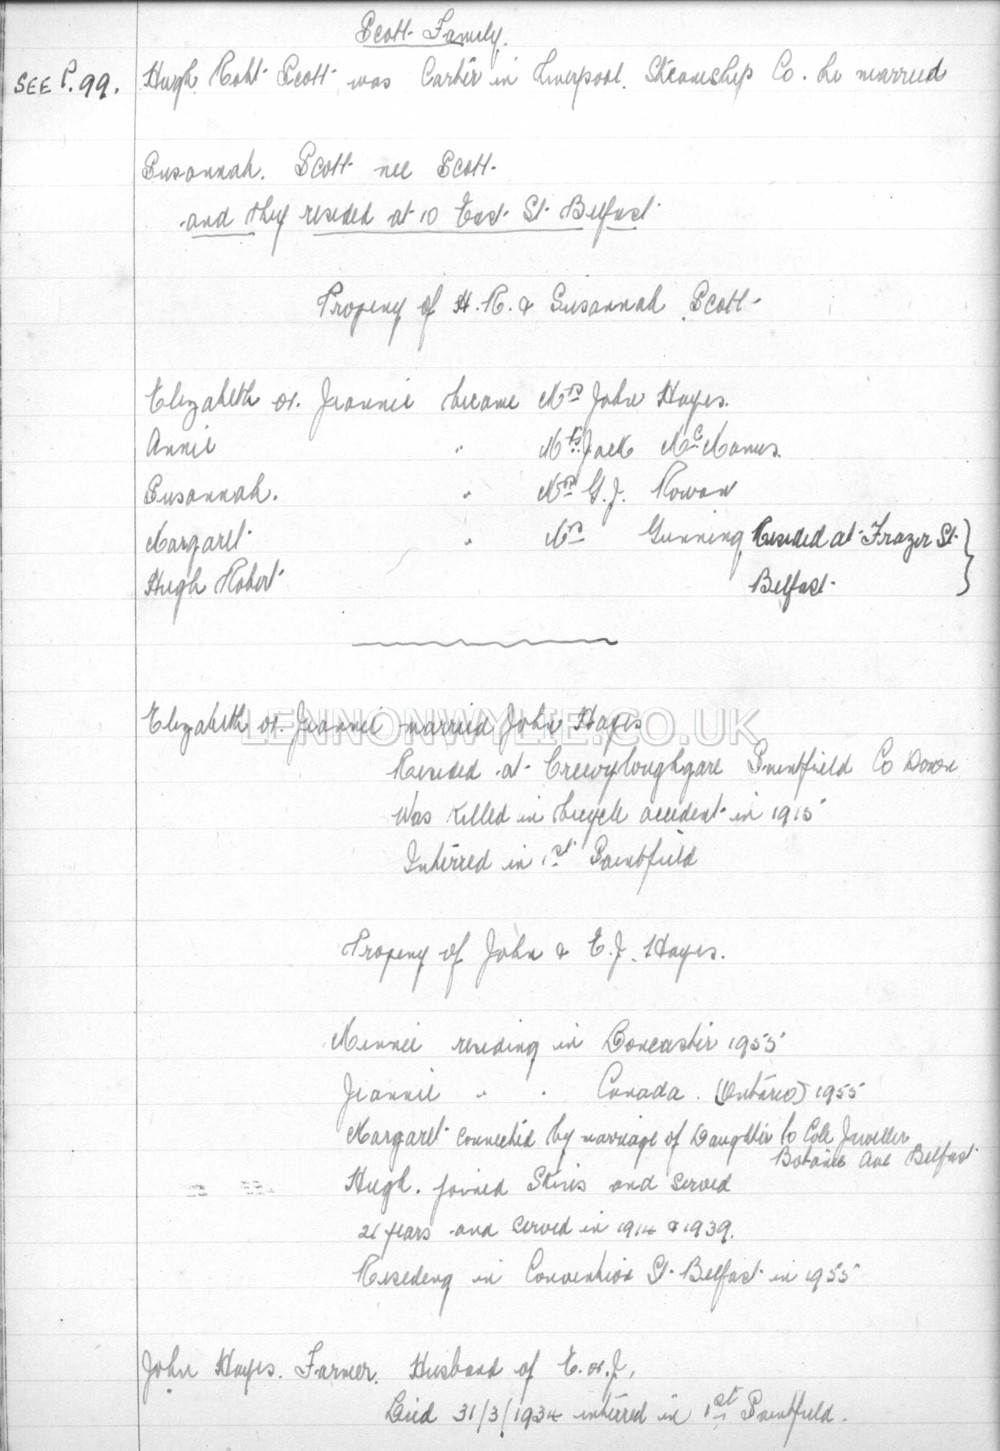 Scott Family.
SEE P. 99.
Hugh Robt Scott was Carter in Liverpool. Steamship Co. he married
Susannah. Scott nee Scott
and they resided at 10 East St Belfast
Progeny of H. R. & Susannah Scott
Elizabeth or. Jeannie became Mrs John Hayes.
Annie " Mrs Jack McManus.
Susannah. " Mrs G. J. Rowan
Margaret " Mrs Gunning Resided at Frazer St
Hugh Robert Belfast
LENNONWYLIE.CO.UK
Elizabeth or. Jeannie married John Hayes
Resided at Creevyloughgare Saintfield Co Down
Was killed in bicycle accident in 1915
Interred in 1st Saintfield
Progeny of John & E. J. Hayes.
Minnie residing in Doncaster 1955
Jeannie " " Canada. (Ontario) 1955
Margaret connected by marriage of Daughter to Cole Jeweller
Botanic Ave Belfast
Hugh. joined Skins and served
21 years and served in 1914 & 1939.
Resideng in Convention St Belfast in 1955
John Hayes. Farmer. Husband of E. or. J.
Died 31/3/1934 interred in 1st Saintfield.